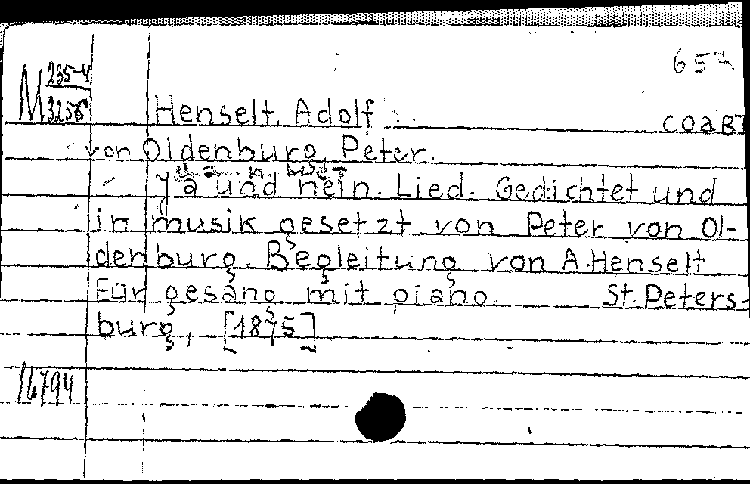 657
M 235-4
3256
Henselt, Adolf
соавт
von Oldenburg, Peter.
Ja und nein. Lied. Gedichtet und
in musik gesetzt von Peter von Ol-
denburg. Begleitung von A. Henselt
Für gesang mit piano. St. Peters-
burg, [1875]
16794